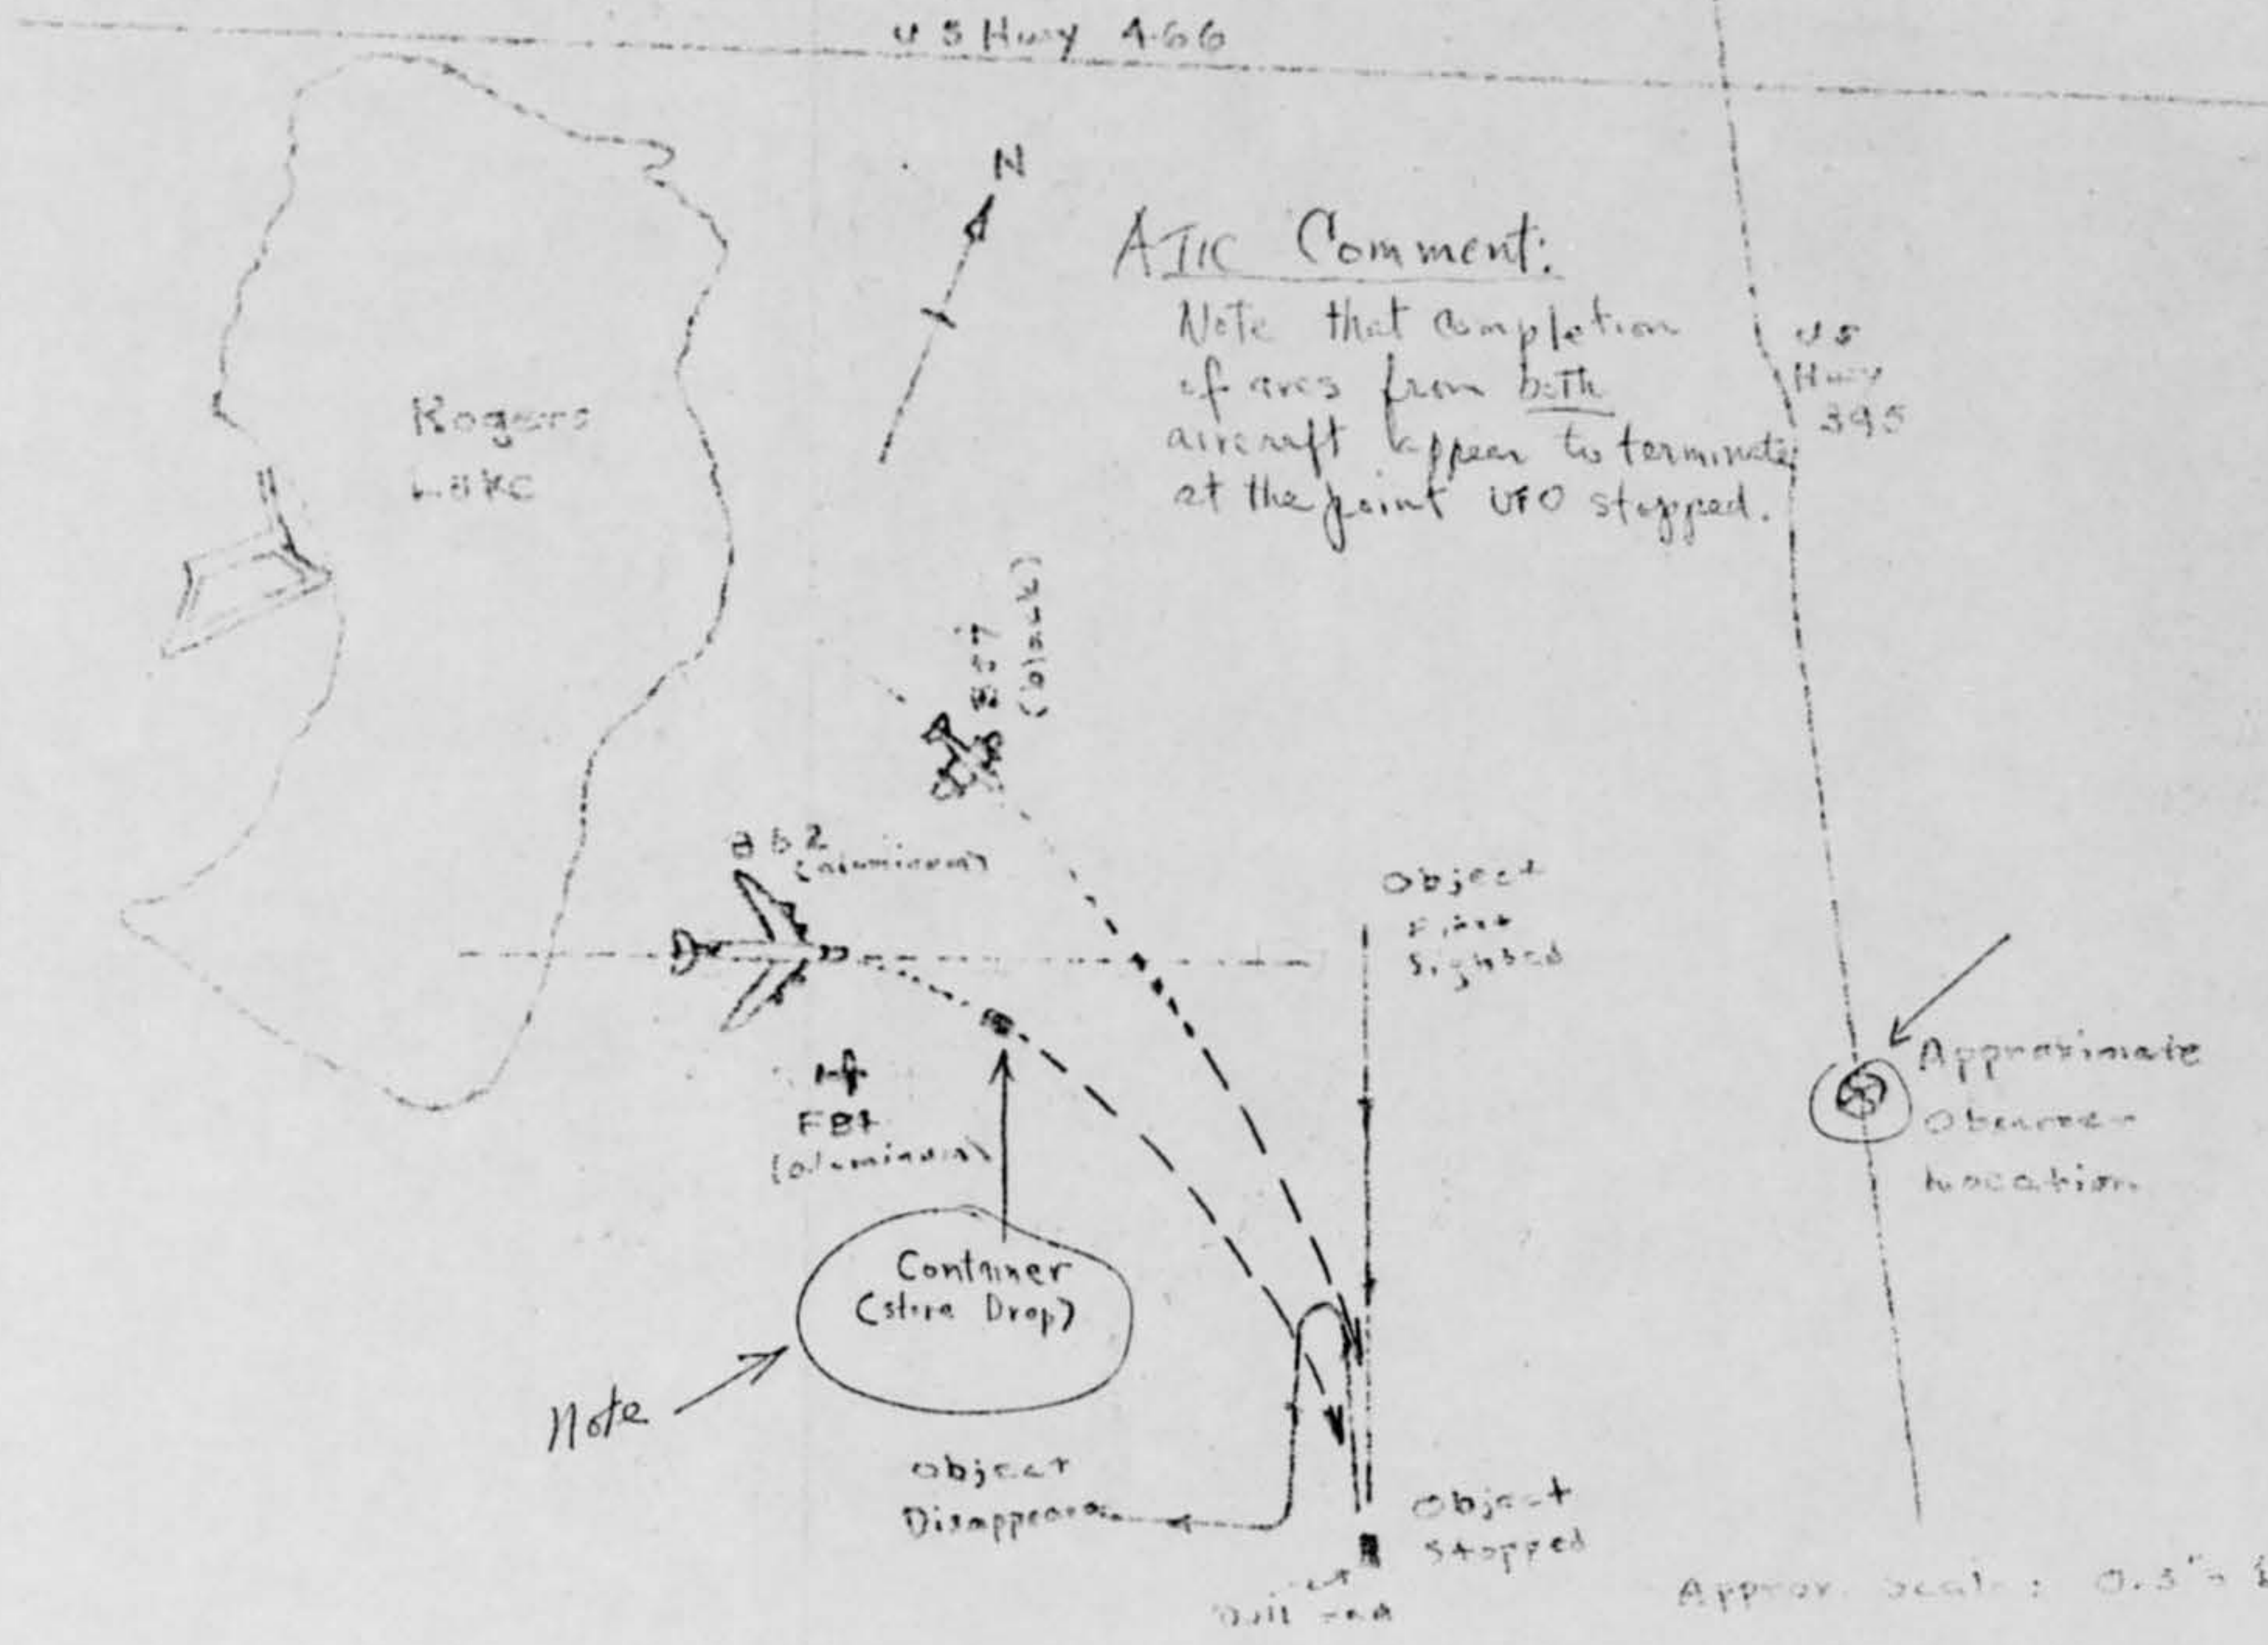 US Hwy 466
N
ATIC Comment:
Note that completion
of arcs from both
aircraft appear to terminate
at the point UFO stopped.
US
Hwy
395
Rogers
Lake
B57
(black)
B52
(aluminum)
Object
First
Sighted
Approximate
Observer
Location
(aluminum)
Container
(store Drop)
Note
Object
Disappears
Object
Stopped
Approx. Scale: